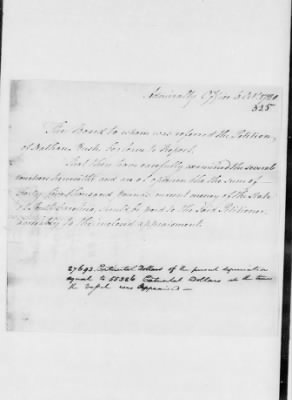 Admiralty Office 6 Oct. 1780
325
The Board to whom was referred the Petition
of Nathan Bush beg leave to Report.
That they have carefully examined the several
vouchers herewith and are of opinion that the sum of
forty four thousand pounds current money of the State
of South Carolina, should be paid to the said Petitioner
agreeably to the inclosed appraisement.
27693. Continental Dollars of the present depreciation
equal to 55386 Continental Dollars at the time
the Vessel was appraised —